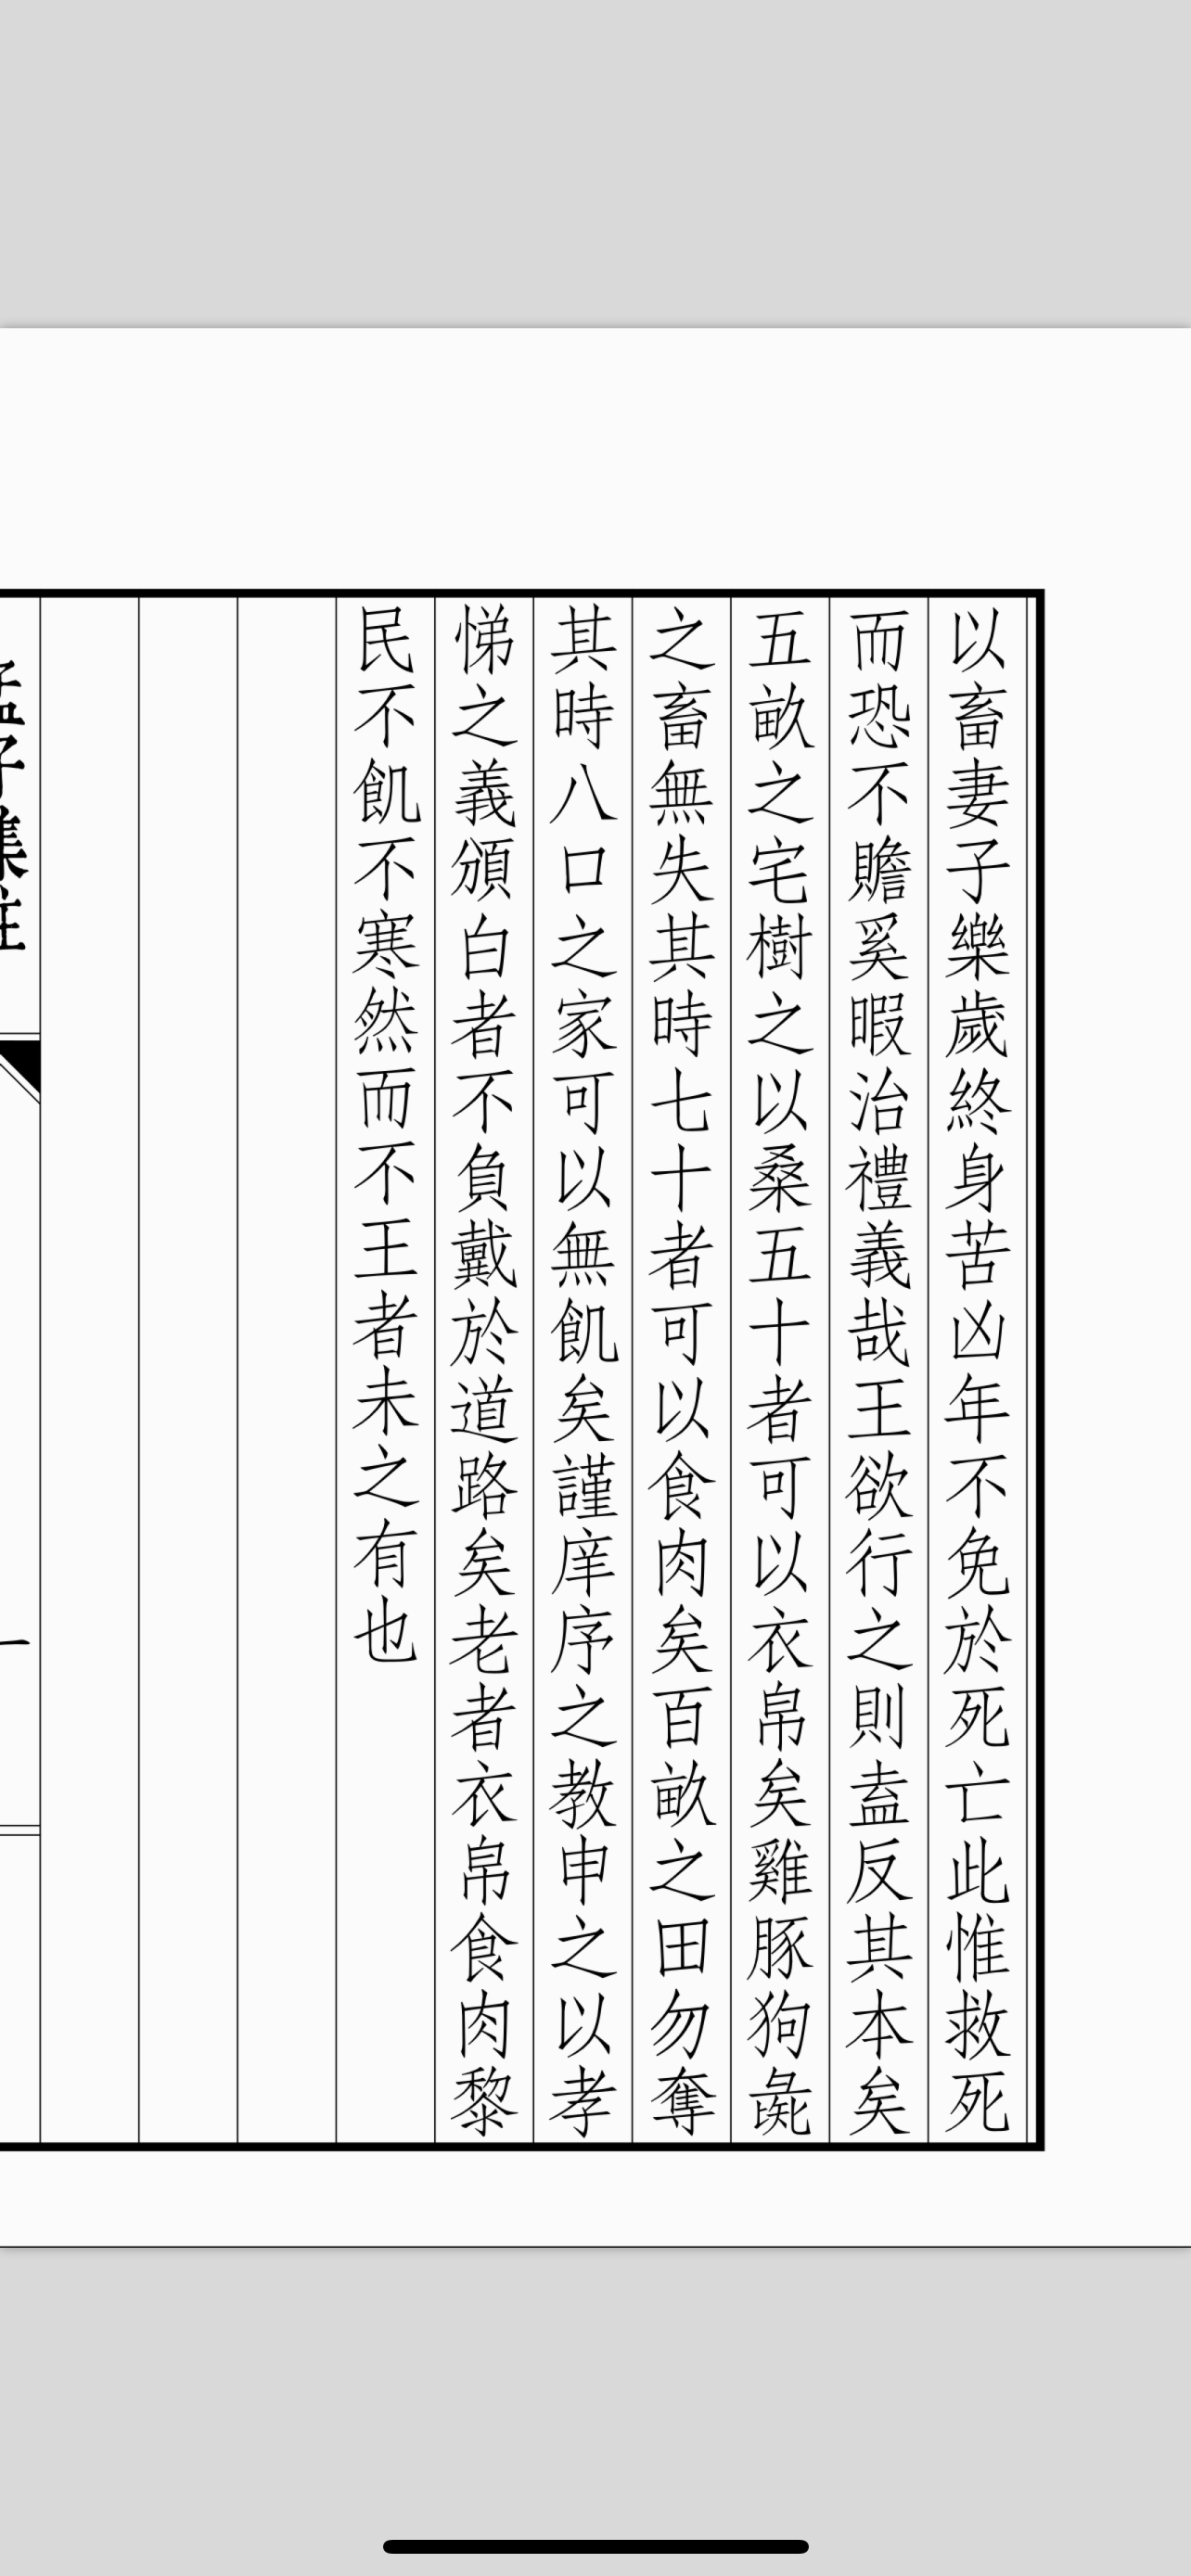 以畜妻子樂歲終身苦凶年不免於死亡此惟救死
而恐不贍奚暇治禮義哉王欲行之則盍反其本矣
五畝之宅樹之以桑五十者可以衣帛矣雞豚狗彘
之畜無失其時七十者可以食肉矣百畝之田勿奪
其時八口之家可以無飢矣謹庠序之教申之以孝
悌之義頒白者不負戴於道路矣老者衣帛食肉黎
民不飢不寒然而不王者未之有也
孟子集註
一